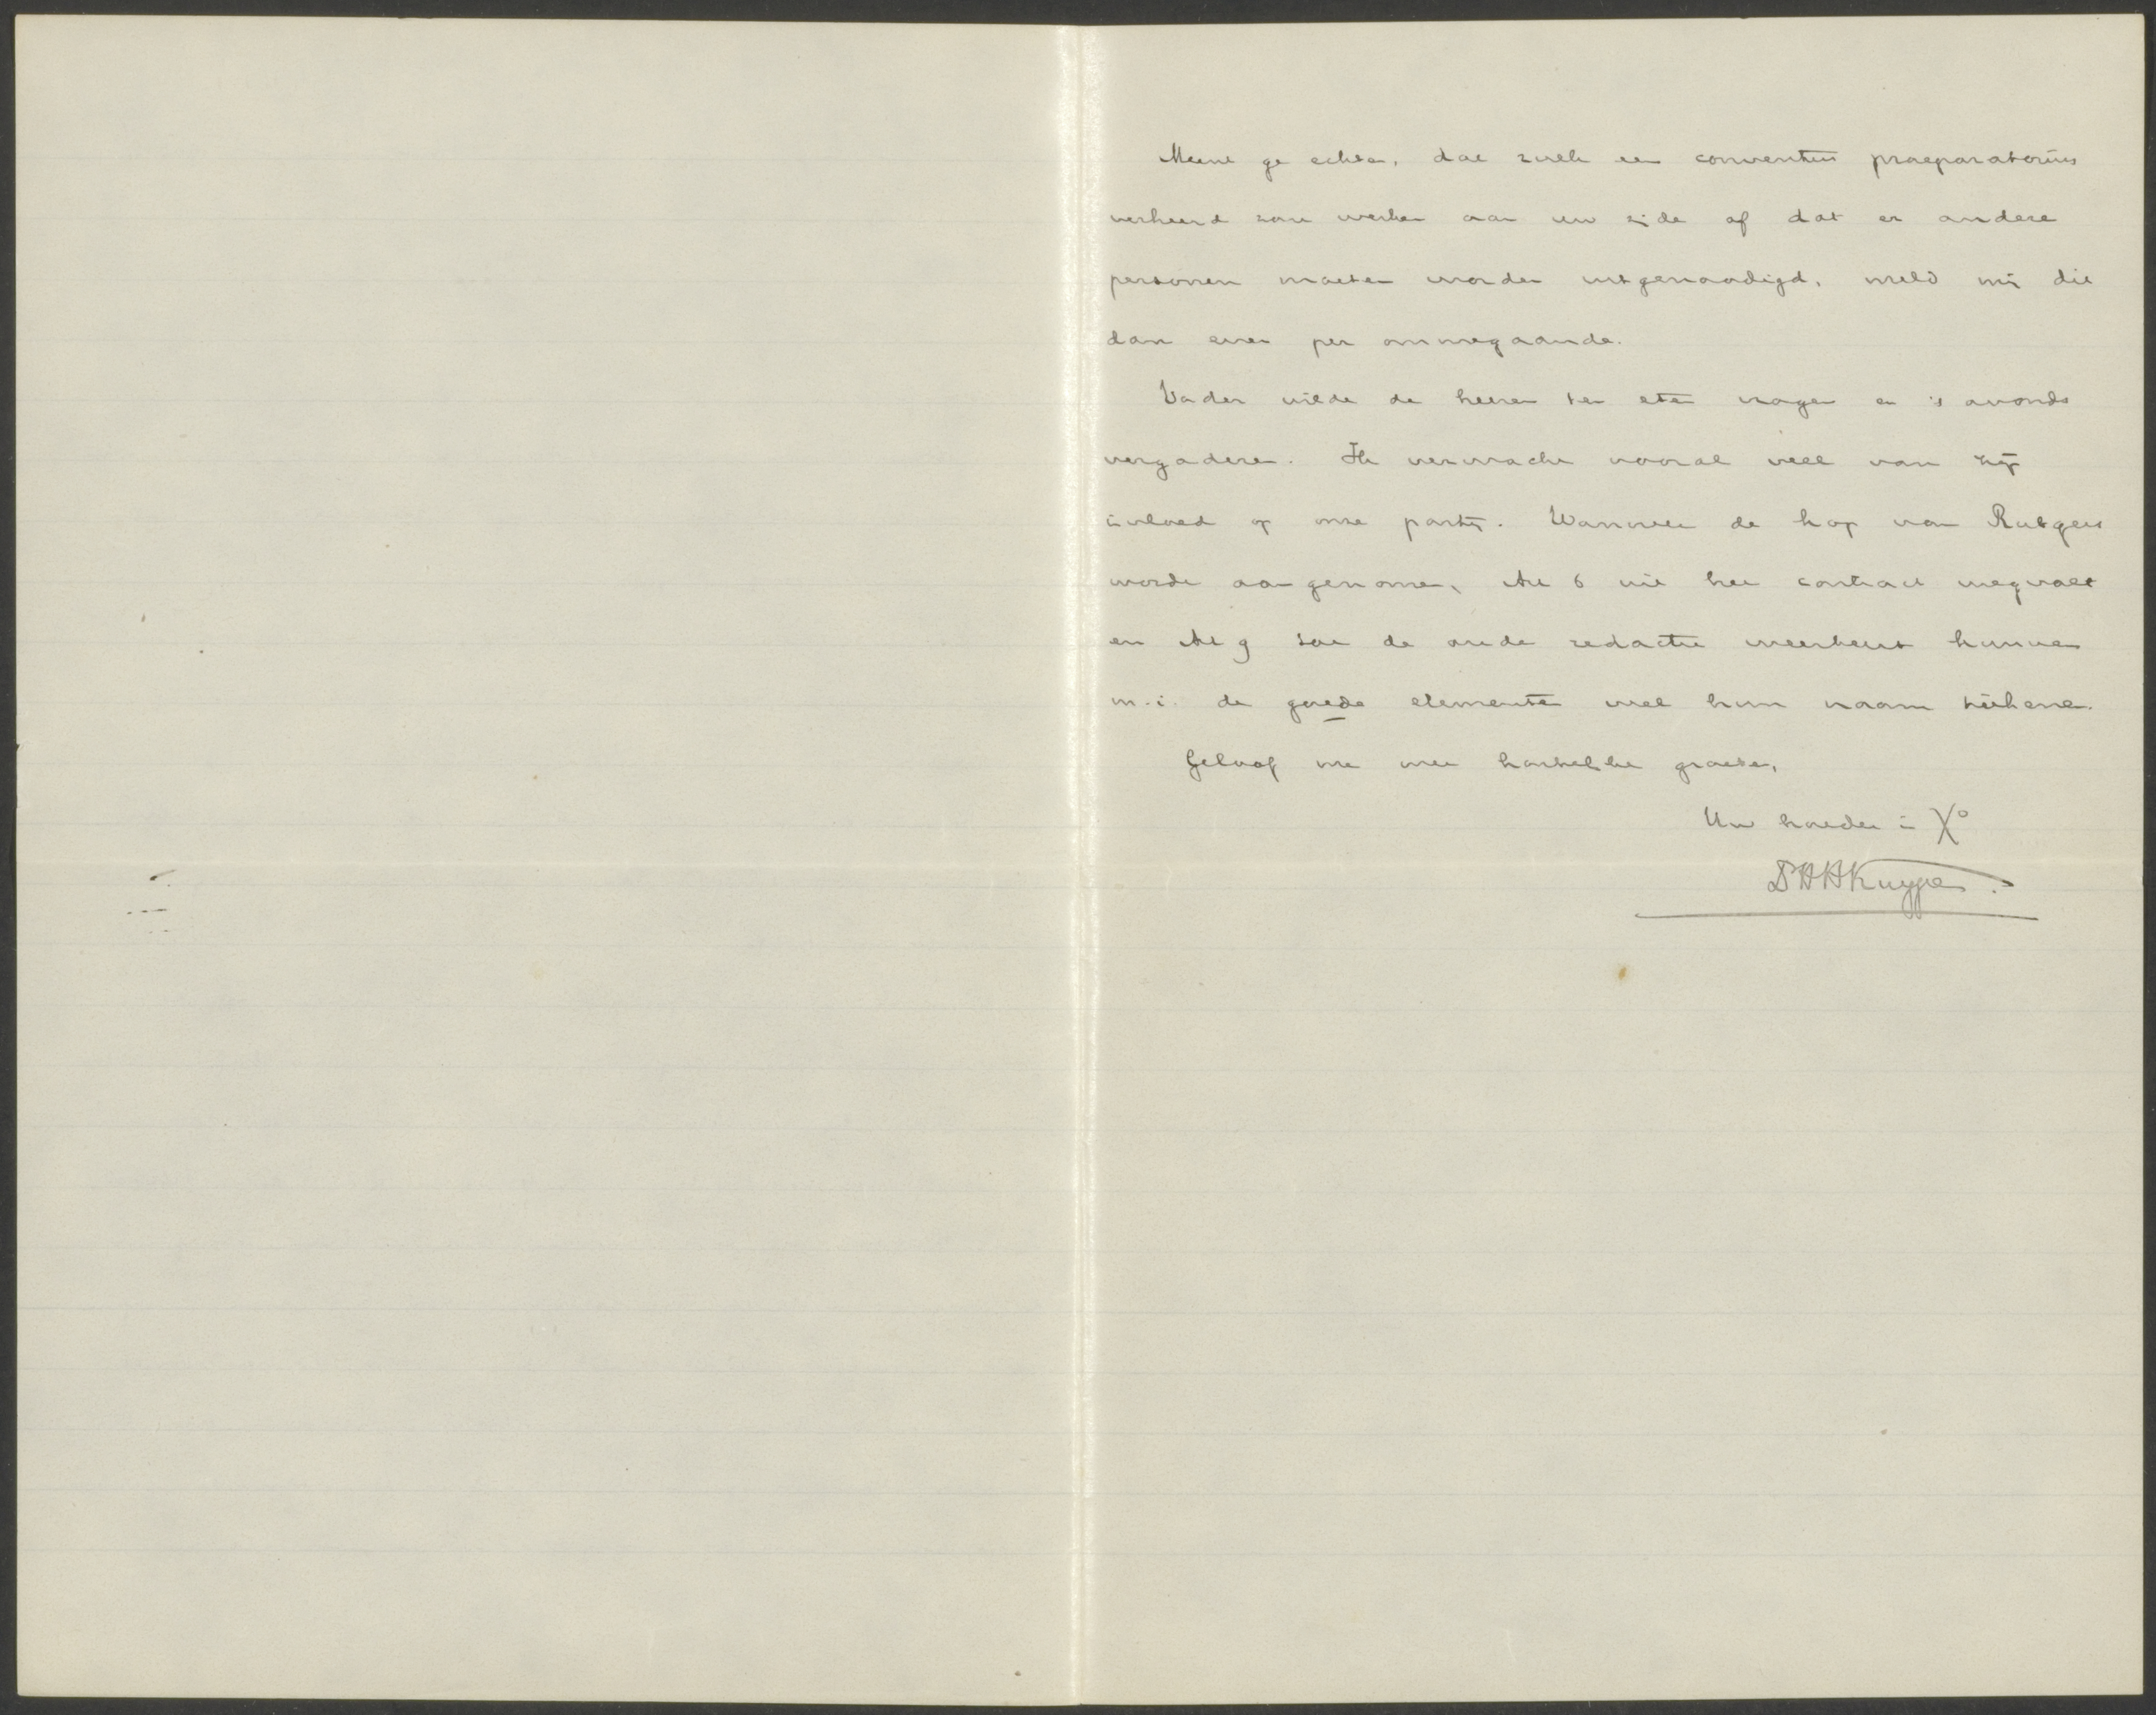 Meent ge echter, dat zulk een conventus praeparatorius
verkeerd zou werken aan uw zijde of dat er andere
personen moeten worden uitgenoodigd, meld mij die
dan even per ommegaande.
Vader wilde de heeren ten eten vragen en 's avonds
vergaderen. Ik verwacht vooral veel van zijn
invloed op onze partij. Wanneer de kop van Rutgers
wordt aangenomen, Art 6 uit het contract wegvalt
en Art 9 tot de oude redactie weerkeert kunnen
m.i. de goede elementen wel hun naam teekenen.
Geloof me met hartelijke groeten,
Uw broeder in Xo
Dr HHKuyper.